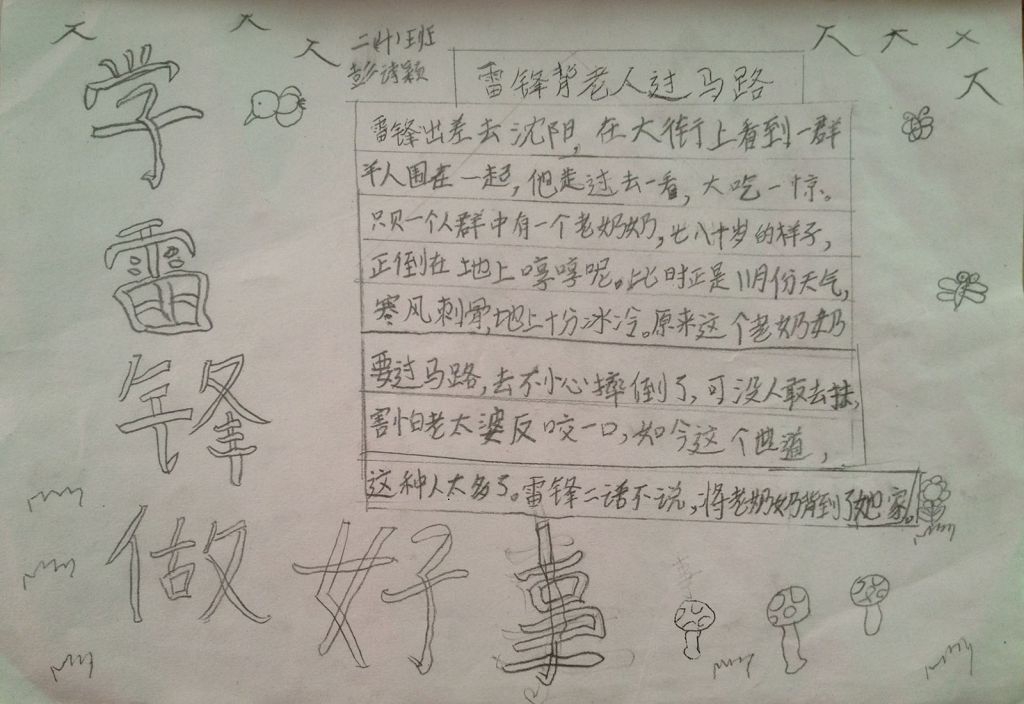 学雷锋做好事
二(1)班
彭诗颖
雷锋背老人过马路
雷锋出差去沈阳,在大街上看到一群
半人围在一起,他走过去一看,大吃一惊。
只见一个人群中有一个老奶奶,七八十岁的样子,
正倒在地上哼哼呢。此时正是11月份天气,
寒风刺骨,地上十分冰冷。原来这个老奶奶
要过马路,去不小心摔倒了,可没人敢去扶,
害怕老太婆反咬一口,如今这个世道,
这种人太多了。雷锋二话不说,将老奶奶背到了她家。